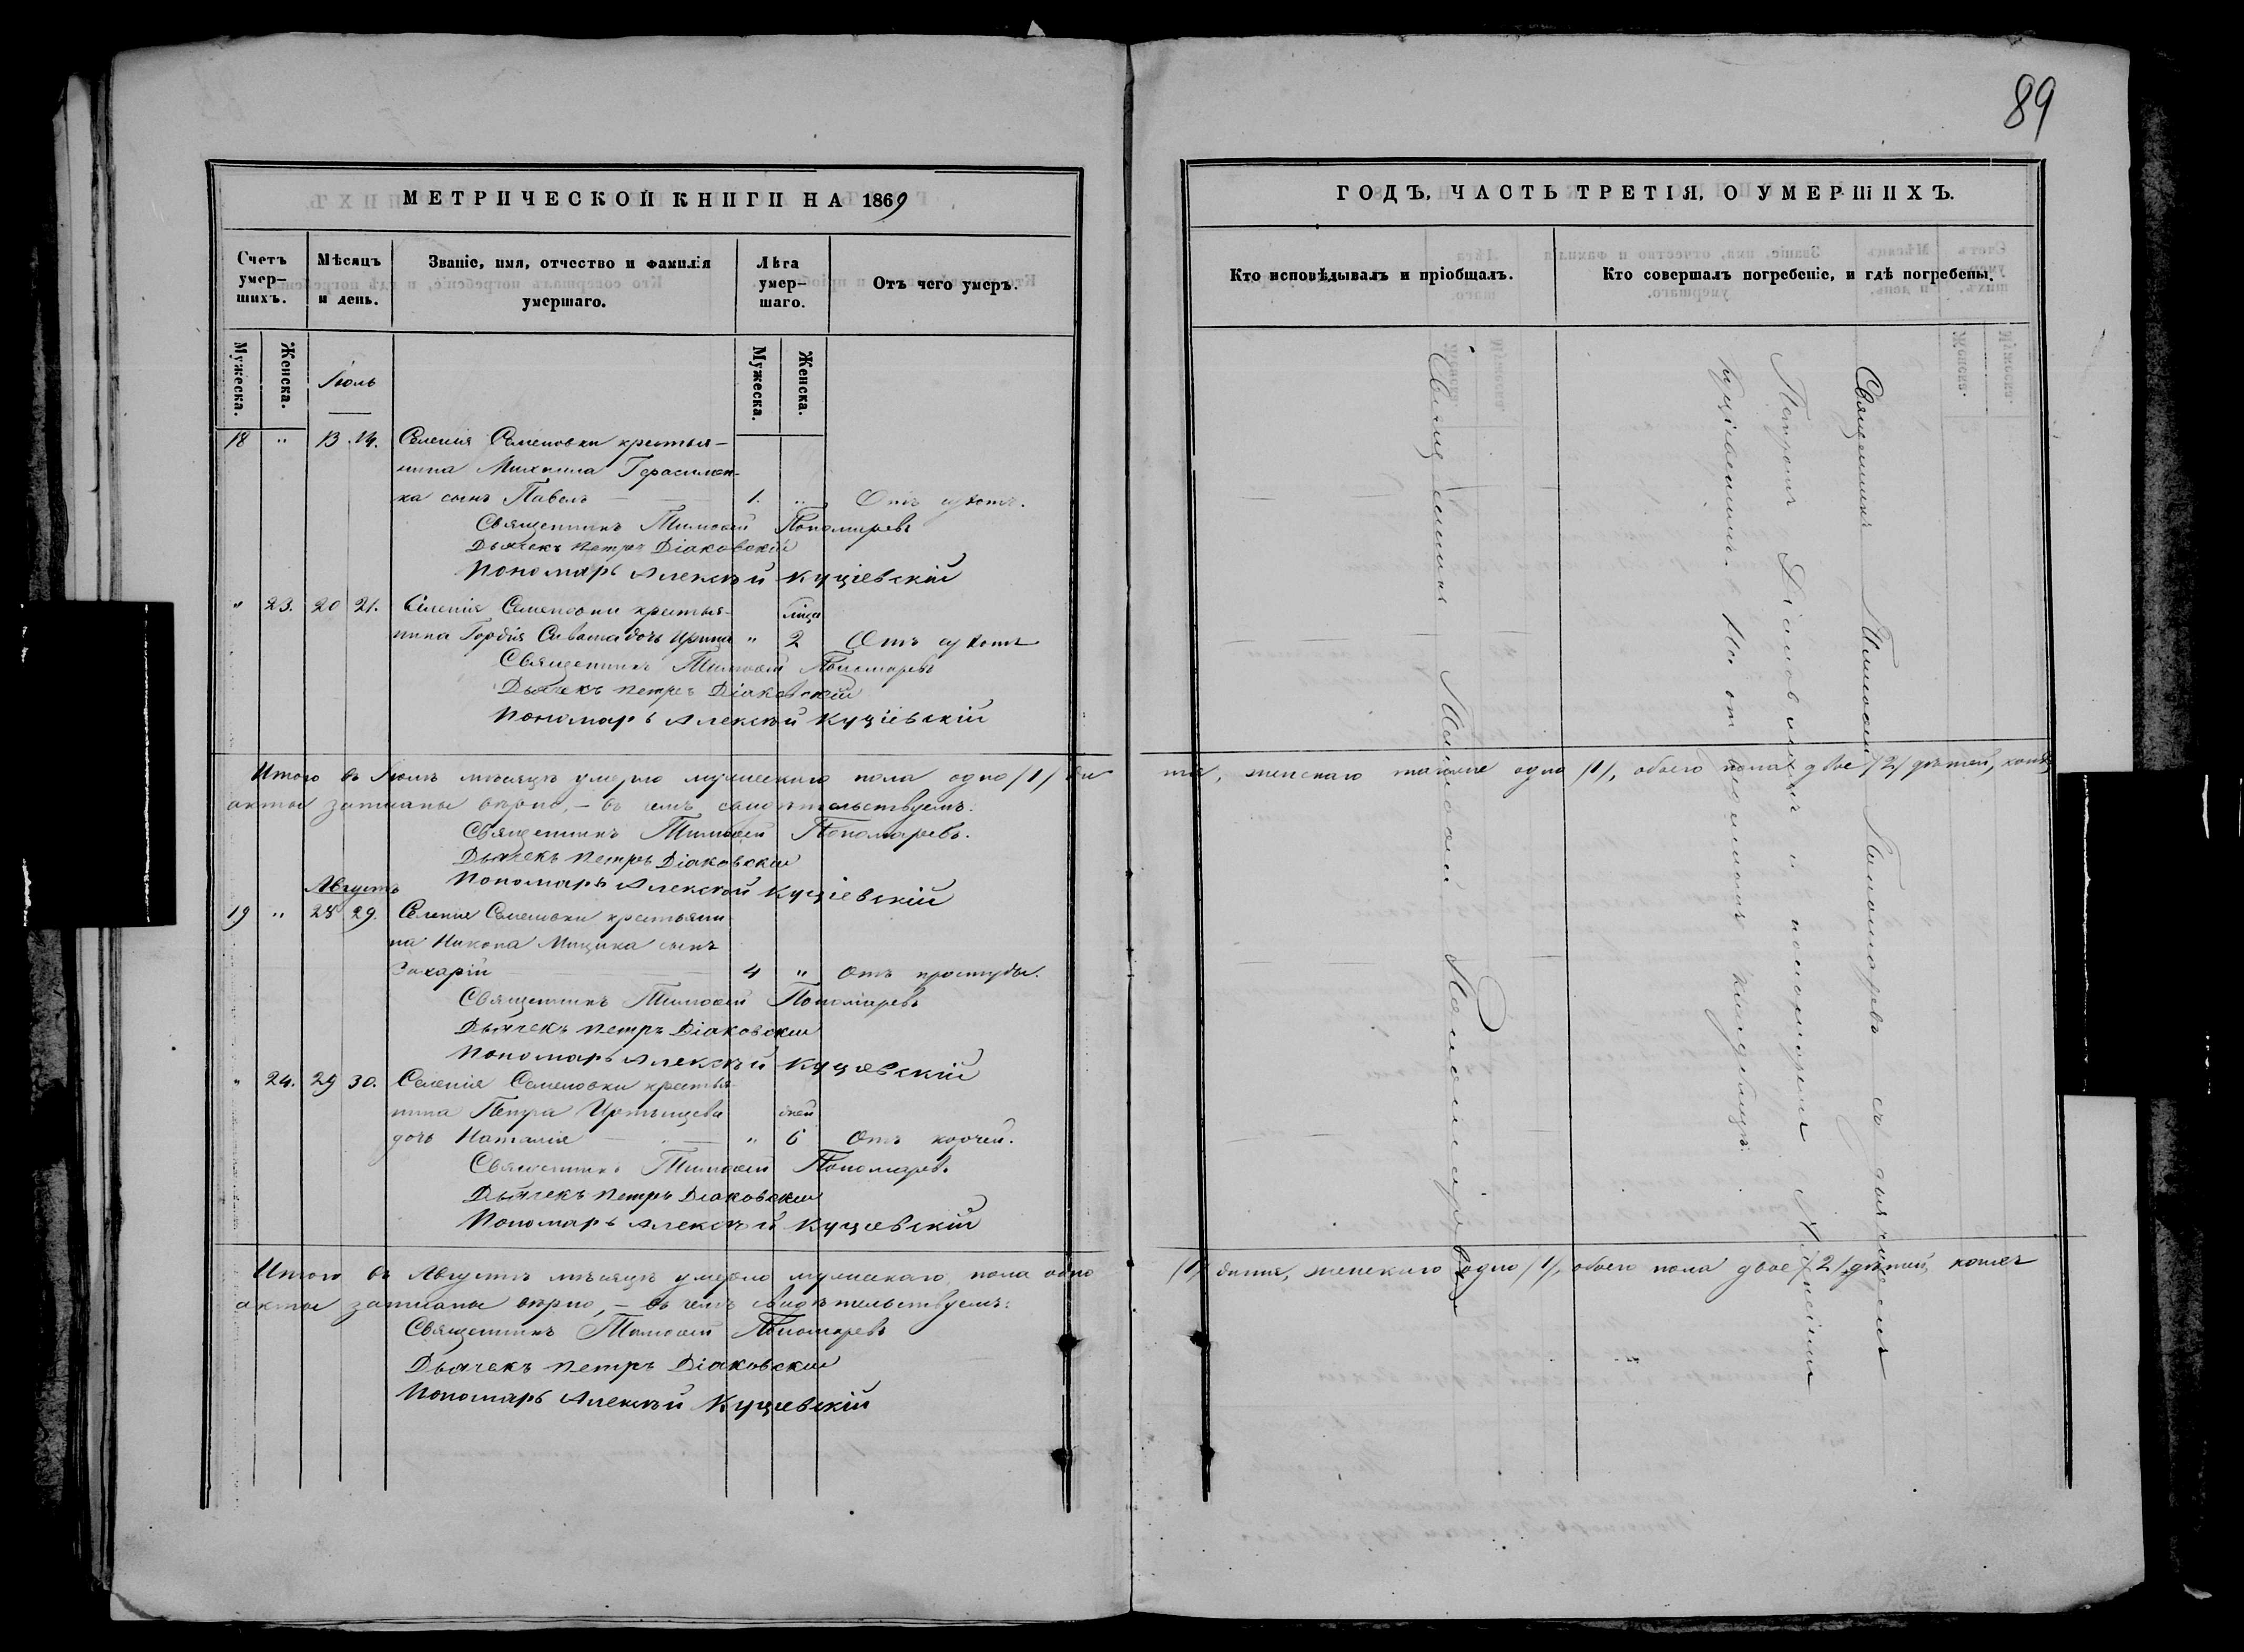 89
МЕТРИЧЕСКОЙ КНИГИ НА 1869
ГОДЪ, ЧАСТЬ ТРЕТІЯ, О УМЕРШИХЪ.
Счетъ умер-шихъ.
Мѣсяцъ и день.
Званіе, имя, отчество и фамилія умершаго.
Лѣта умер-шаго.
Отъ чего умеръ.
Кто исповѣдывалъ и пріобщалъ.
Кто совершалъ погребеніе, и гдѣ погребены.
Мужеска.
Женска.
Мужеска.
Женска.
Іюль
18 " 13 14. Селенія Семеновки крестья-
нина Михаила Герасимен-
ка сынъ Павелъ 1. " Отъ сухотъ.
Священникъ Тимоѳей Пономаревъ
Дьячекъ Петръ Діаковскій
Пономарь Алексѣй Куціевскій
" 23. 20 21. Селенія Семеновки крестья-
нина Гордія дочь Ирина " 2 Отъ сухотъ
Священникъ Тимоѳей Пономаревъ
Дьячекъ Петръ Діаковскій
Пономарь Алексѣй Куціевскій
Итого въ Іюлѣ мѣсяцѣ умерло мужескаго пола одно /1/ ди
тя, женскаго также одно /1/, обоего пола двое /2/ дѣтей, коихъ
акты записаны вѣрно, – въ чемъ свидѣтельствуемъ:
Священникъ Тимоѳей Пономаревъ.
Дьячекъ Петръ Діаковскій
Пономарь Алексѣй Куціевскій
Августъ
19 " 28 29. Селенія Семеновки крестьяни
на Никона Мицика сынъ
Захарій 4 " Отъ простуды.
Священникъ Тимоѳей Пономаревъ
Дьячекъ Петръ Діаковскій
Пономарь Алексѣй Куціевскій
" 24. 29 30. Селенія Семеновки крестья
нина Петра дней
дочь Наталія " 6 Отъ корчей.
Священникъ Тимоѳей Пономаревъ.
Дьячекъ Петръ Діаковскій
Пономарь Алексѣй Куціевскій
Итого въ Августѣ мѣсяцѣ умерло мужескаго пола одно
/1/ дитя, женскаго одно /1/, обоего пола двое /2/ дѣтей, коихъ
акты записаны вѣрно, – въ чемъ свидѣтельствуемъ:
Священникъ Тимоѳей Пономаревъ
Дьячекъ Петръ Діаковскій
Пономарь Алексѣй Куціевскій
Священникъ Тимоѳей Пономаревъ
Священникъ Тимоѳей Пономаревъ съ дьячкомъ
Петромъ Діаковскимъ и пономаремъ Алексѣемъ
Куціевскимъ. На кладбищѣ.